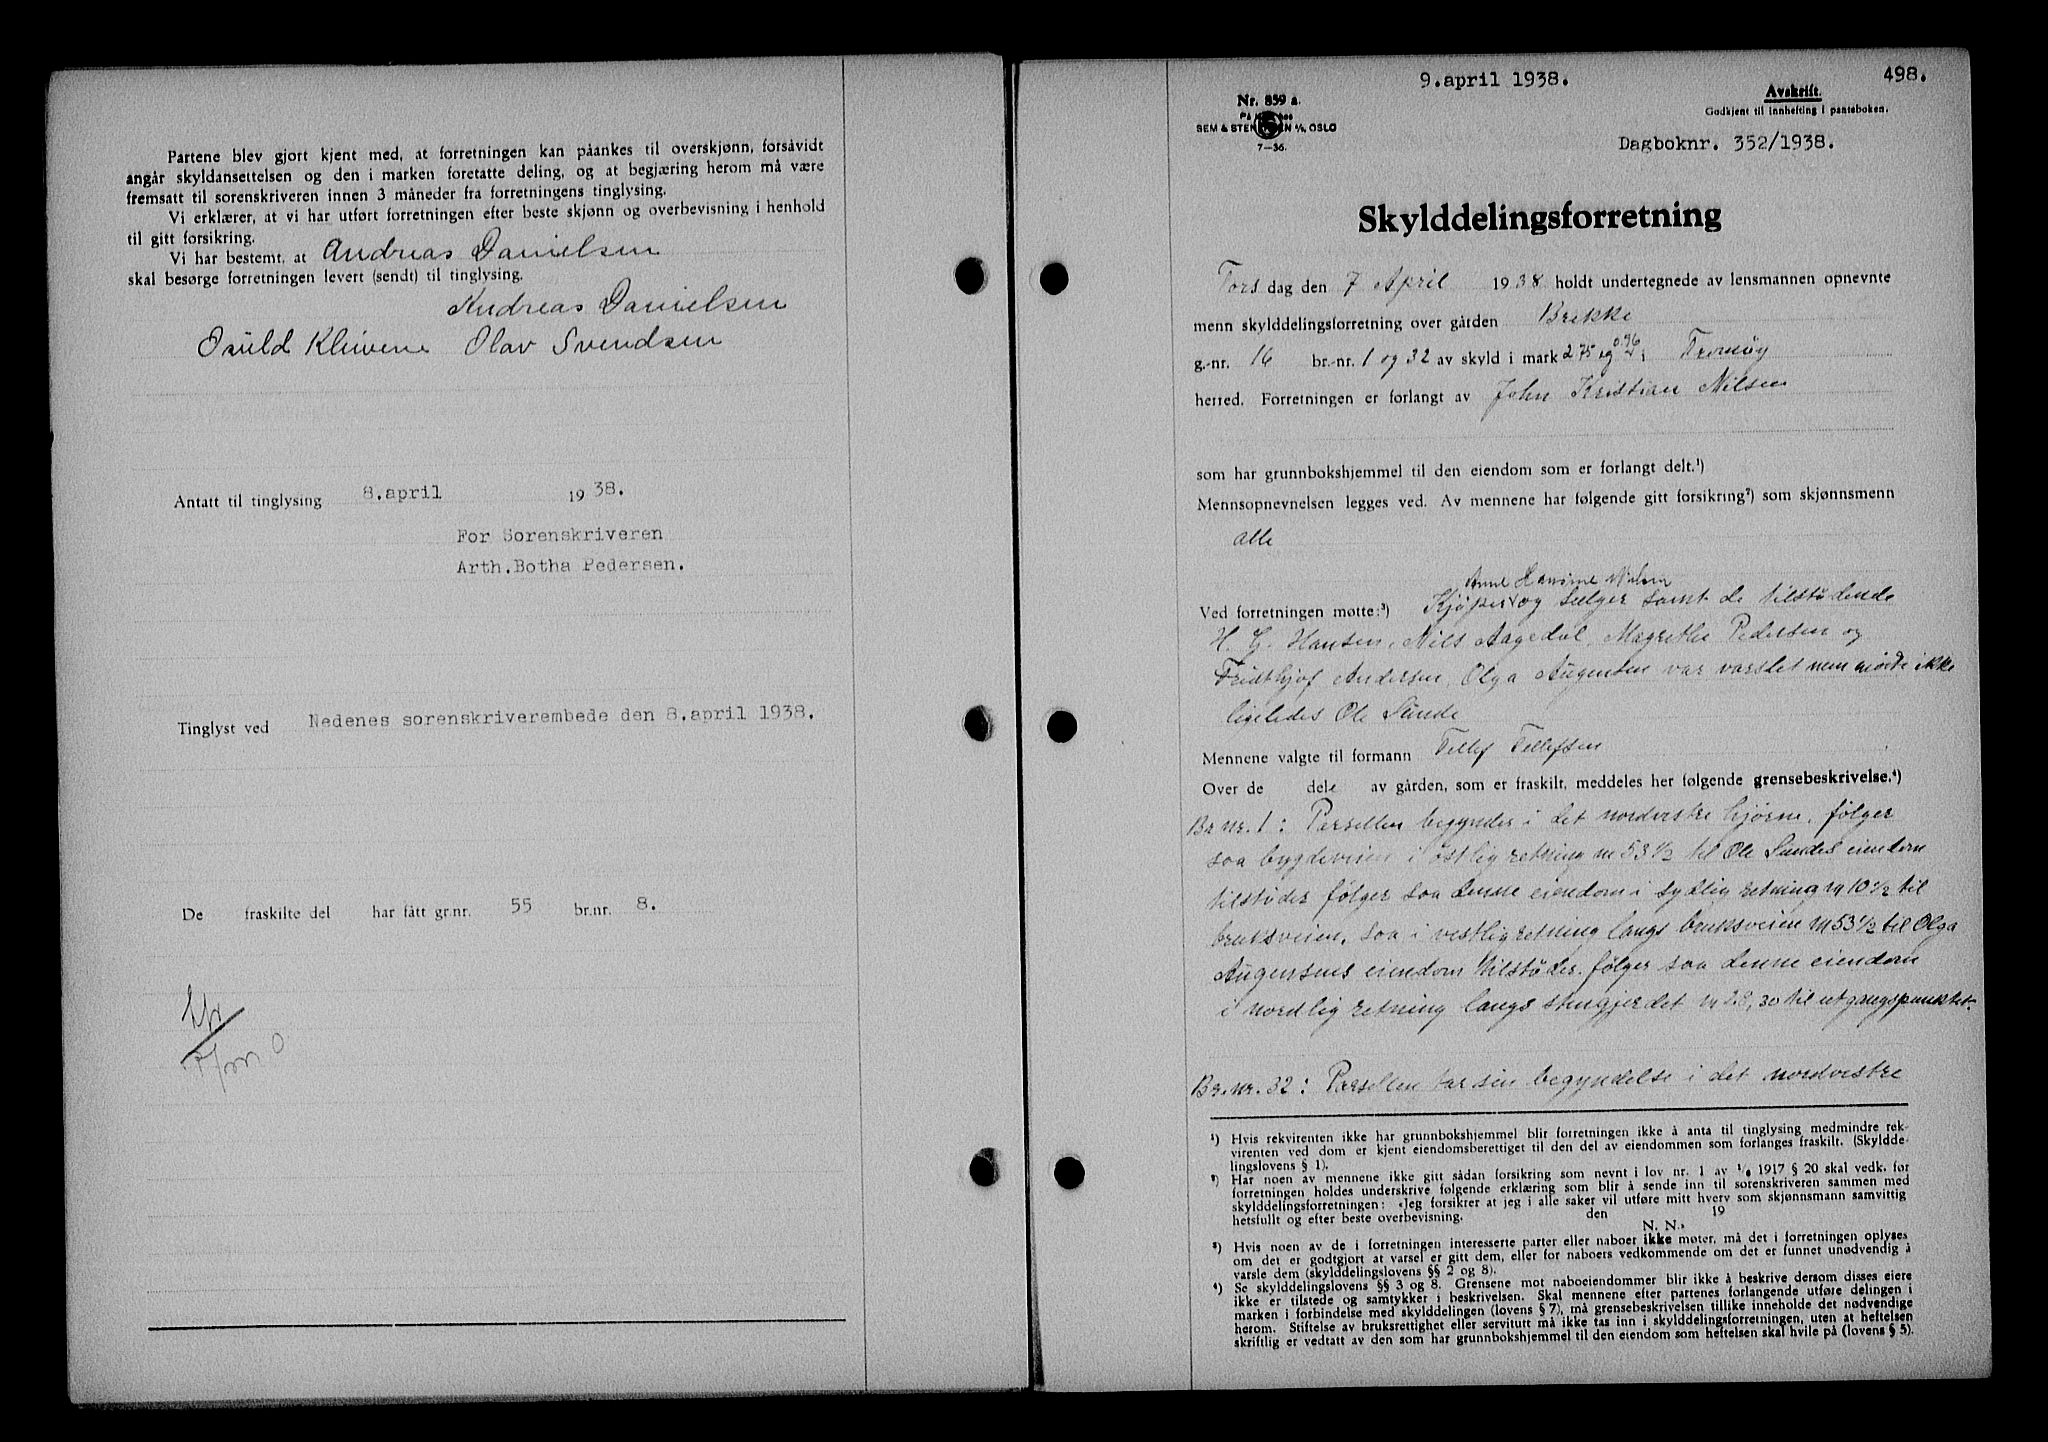 Partene blev gjort kjent med, at forretningen kan påankes til overskjønn, forsåvidt
angår skyldansettelsen og den i marken foretatte deling, og at begjæring herom må være
fremsatt til sorenskriveren innen 3 måneder fra forretningens tinglysing.
Vi erklærer, at vi har utført forretningen efter beste skjønn og overbevisning i henhold
til gitt forsikring.
Vi har bestemt, at Andreas Danielsen
skal besørge forretningen levert (sendt) til tinglysing.
Andreas Danielsen
Osuld Kleivene Olav Svendsen
Antatt til tinglysing 8.april 1938.
For Sorenskriveren
Arth.Botha Pedersen.
Tinglyst ved Nedenes sorenskriverembede den 8.april 1938.
De fraskilte del har fått gr.nr. 55 br.nr. 8.
9.april 1938.
498.
Nr. 859 a.
SEM & STENERSEN A/S, OSLO
7-36.
Avskrift.
Godkjent til innhefting i panteboken.
Dagboknr. 352/1938.
Skylddelingsforretning
Torsdag den 7 April 1938 holdt undertegnede av lensmannen opnevnte
menn skylddelingsforretning over gården Brekke
g.-nr. 16 br.-nr. 1 og 32 av skyld i mark 2 75 og 0.96 i Tromøy
herred. Forretningen er forlangt av John Kristian Nilsen
som har grunnbokshjemmel til den eiendom som er forlangt delt.¹)
Mennsopnevnelsen legges ved. Av mennene har følgende gitt forsikring²) som skjønnsmenn
alle
Anne Hansine Nilsen
Ved forretningen møtte:³) Kjøper og selger samt de tilstødende
H. G. Hansen, Nils Aagedal, Magrethe Pedersen og
Fridthjof Andersen, Olga Augensen var varslet men møtte ikke
ligeledes Ole Sunde
Mennene valgte til formann Tellef Tellefsen
Over de dele av gården, som er fraskilt, meddeles her følgende grensebeskrivelse.⁴)
Br nr. 1: Parsellen begynder i det nordvestre hjørne, følger
saa bygdeveien i østlig retning m 53 1/2 til Ole Sundes eiendom
tilstøder følger saa denne eiendom i sydlig retning m 10 1/2 til
bruksveien, saa i vestlig retning langs bruksveien m 53 1/2 til Olga
Augensens eiendom tilstøder. følger saa denne eiendom
i nordlig retning langs stengjerdet m 28,30 til utgangspunktet.
Br.nr. 32: Parsellen tar sin begyndelse i det nordvestre
¹) Hvis rekvirenten ikke har grunnbokshjemmel blir forretningen ikke å anta til tinglysing medmindre rek-
virenten ved dom er kjent eiendomsberettiget til den del av eiendommen som forlanges fraskilt. (Skyldde-
lingslovens § 1).
²) Har noen av mennene ikke gitt sådan forsikring som nevnt i lov nr. 1 av 1/6 1917 § 20 skal vedk. før
forretningen holdes underskrive følgende erklæring som blir å sende inn til sorenskriveren sammen med
skylddelingsforretningen: «Jeg forsikrer at jeg i alle saker vil utføre mitt hverv som skjønnsmann samvittig
hetsfullt og efter beste overbevisning. den 19
N. N.»
³) Hvis noen av de i forretningen interesserte parter eller naboer ikke møter, må det i forretningen oplyses
om det er godtgjort at varsel er gitt dem, eller for naboers vedkommende om det er funnet unødvendig å
varsle dem (skylddelingslovens §§ 2 og 8).
⁴) Se skylddelingslovens §§ 3 og 8. Grensene mot naboeiendommer blir ikke å beskrive dersom disses eiere
ikke er tilstede og samtykker i beskrivelsen. Skal mennene efter partenes forlangende utføre delingen i
marken i forbindelse med skylddelingen (lovens § 7), må grensebeskrivelsen tillike inneholde det nødvendige
herom. Stiftelse av bruksrettighet eller servitutt må ikke tas inn i skylddelingsforretningen, uten at heftelsen
skriftlig er vedtatt av den som har grunnbokshjemmel til den eiendom som heftelsen skal hvile på (lovens § 5).